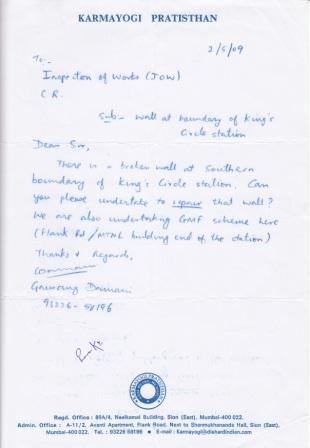 KARMAYOGI PRATISTHAN
2/5/09
To,
Inspection of Works (IOW)
C.R.
Sub:- Wall at boundary of King's
Circle station
Dear Sir,
There is a broken wall at southern
boundary of King's Circle station. Can
you please undertake to repair that wall?
We are also undertaking GMF scheme here
(Flank Rd / MTNL building end of the station)
Thanks & Regards,
Gaurang Damani
93226-58196
KARMAYOGI PRATISTHAN
Regd. Office : 85A/4, Neelkamal Building, Sion (East), Mumbai-400 022.
Admin. Office : A-11/2, Avanti Apartment, Flank Road, Next to Shanmukhananda Hall, Sion (East),
Mumbai-400 022. Tel. : 93226 58196 • E-mail : Karmayogi@diehardindian.com